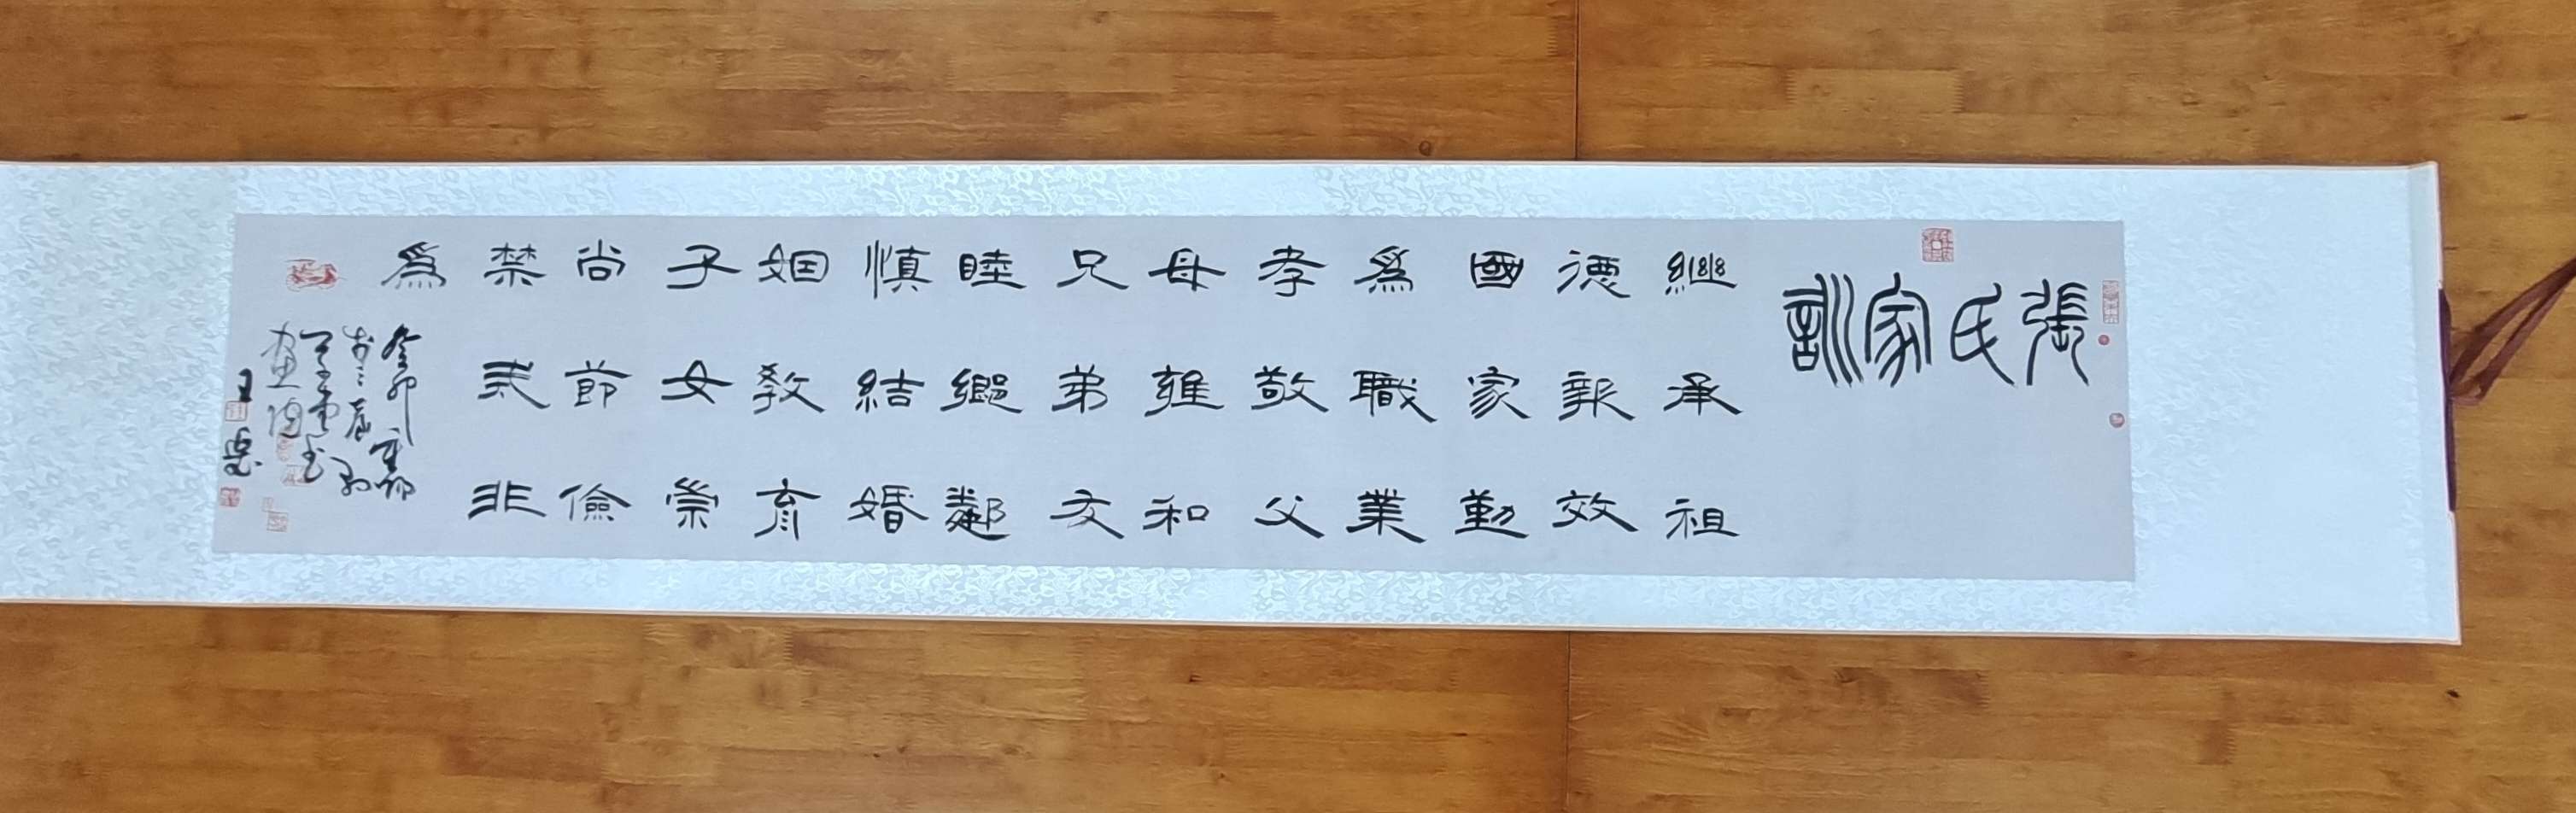 張氏家訓
繼承祖
德報效
國家勤
為職業
孝敬父
母雍和
兄弟友
睦鄉鄰
慎結婚
姻教育
子女崇
尚節儉
禁貳非
為
癸卯